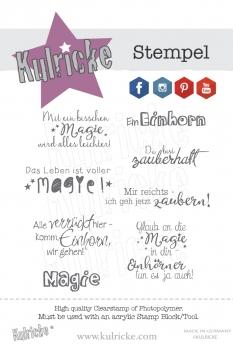 Kulricke
Stempel
Mit ein bisschen
Magie
wird alles leichter!
Ein Einhorn
Du bist
zauberhaft
Das Leben ist voller
magie!
Mir reichts -
ich geh jetzt zaubern!
Alle verrückt hier -
komm Einhorn,
wir gehen!
Glaub an die
Magie
in dir -
Einhörner
tun es ja auch!
Magie
High quality Clearstamp of Photopolymer.
Must be used with an acrylic Stamp Block/Tool.
Kulricke
www.kulricke.com
MADE IN GERMANY
©KULRICKE